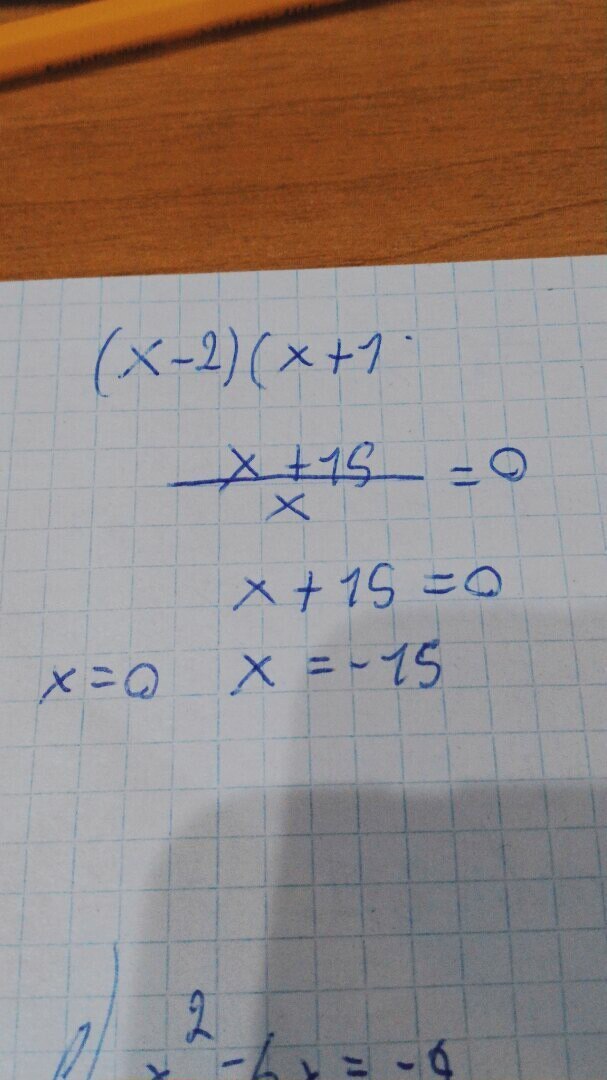 (x-2)(x+1
x+15
/x = 0
x+15=0
x=0 x=-15
x²-6x=-9